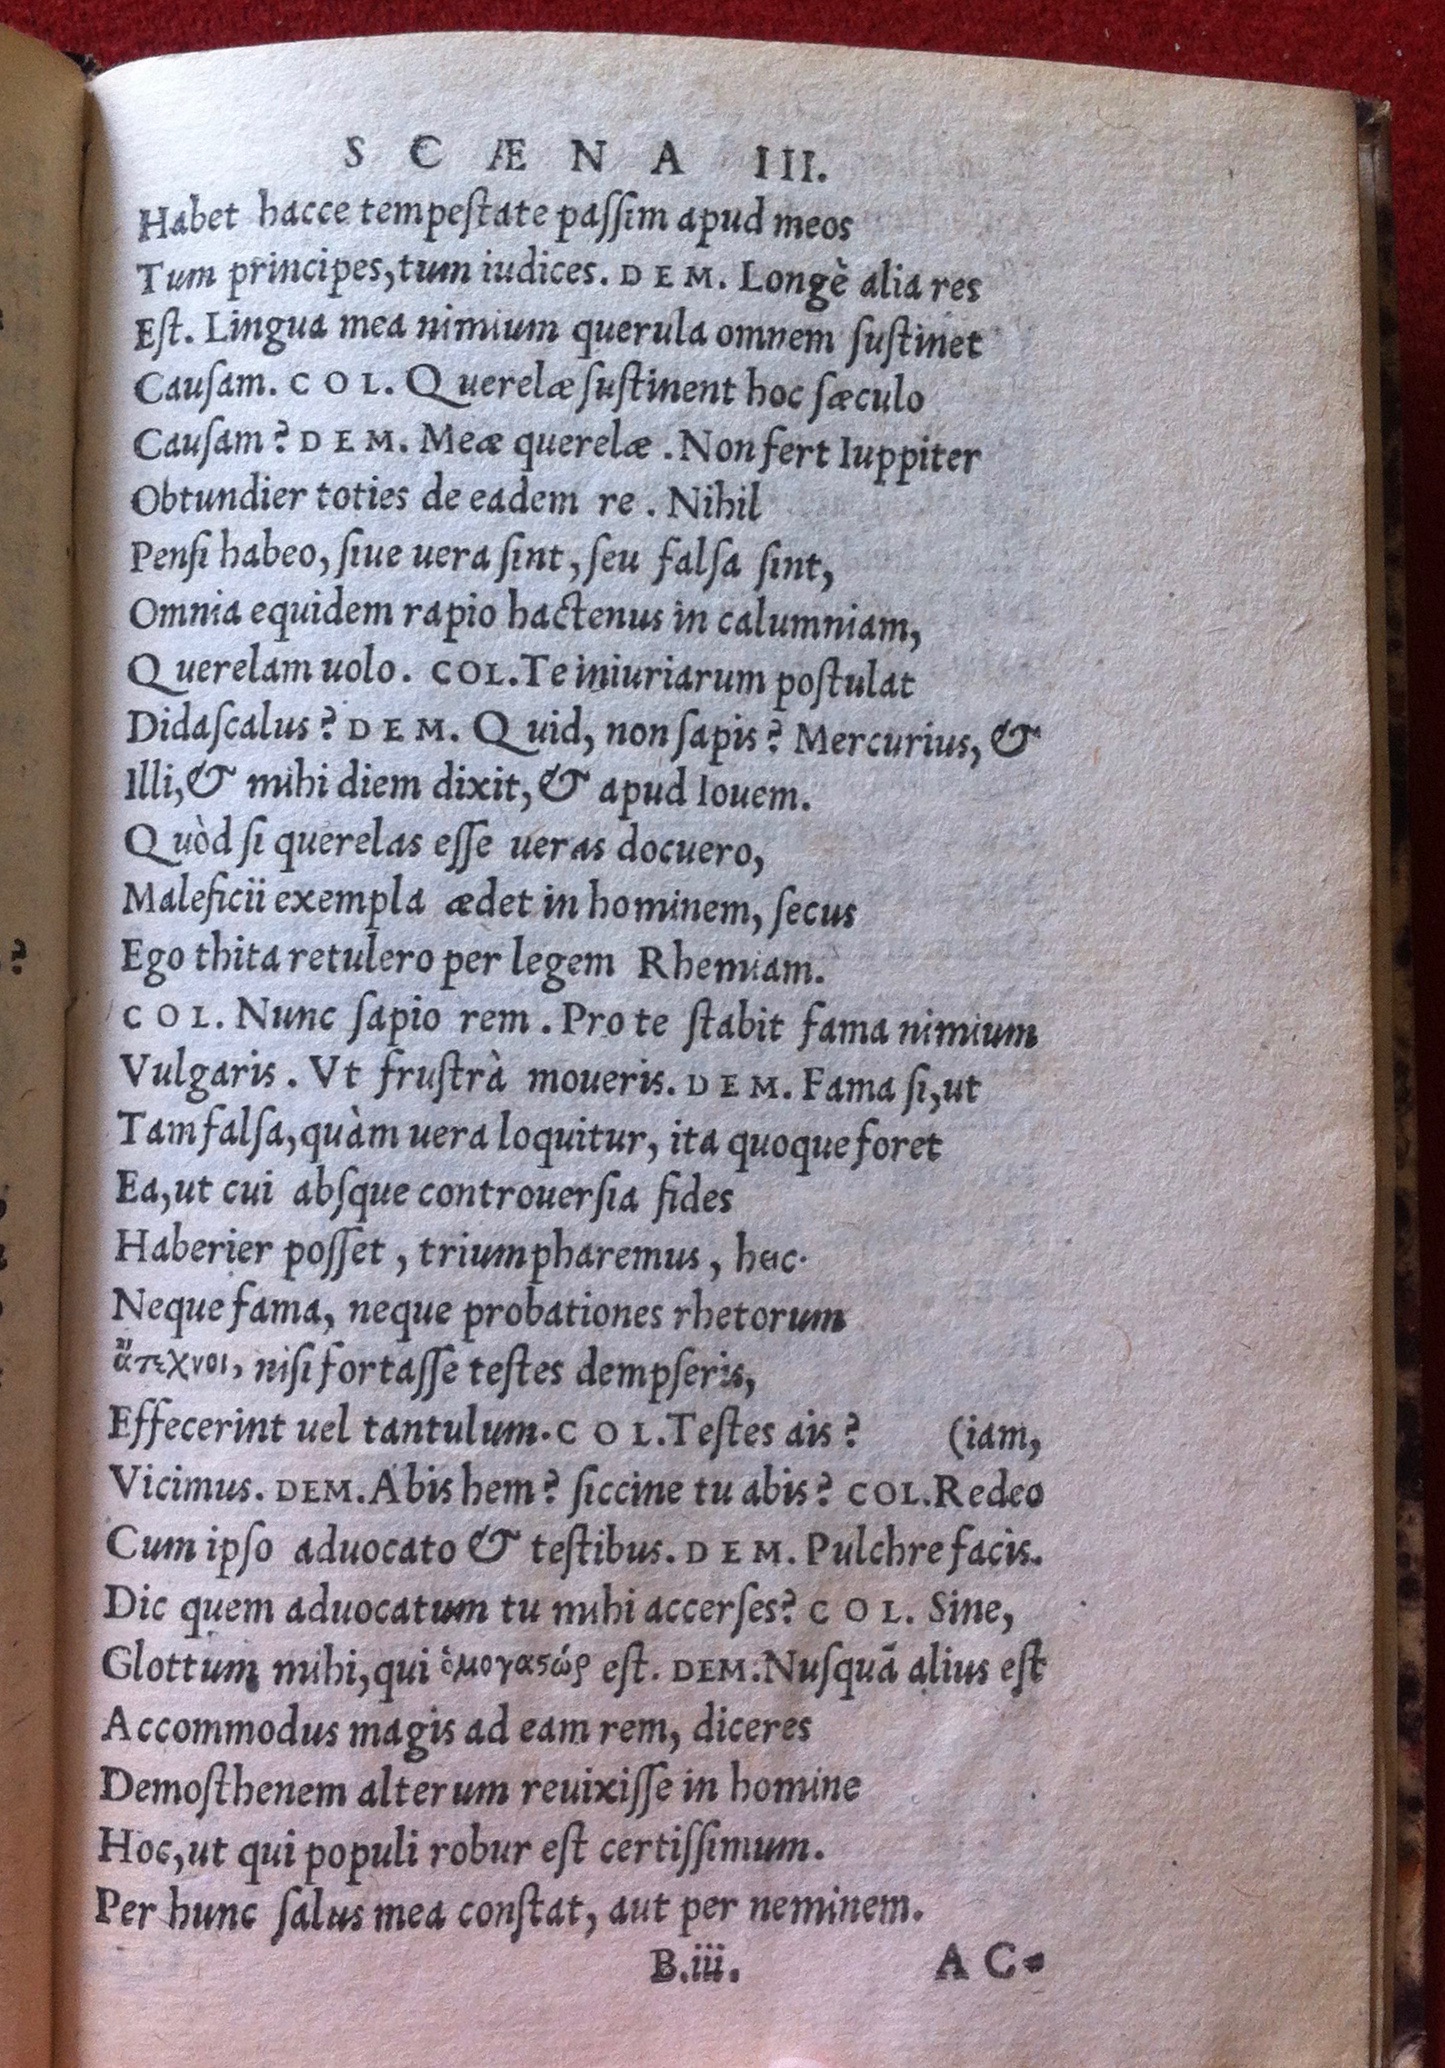 SCÆNA III.
Habet hacce tempeſtate paſſim apud meos
Tum principes, tum iudices. DEM. Longè alia res
Eſt. Lingua mea nimium querula omnem ſuſtinet
Cauſam. COL. Querelæ ſuſtinent hoc ſæculo
Cauſam? DEM. Meæ querelæ. Non fert Iuppiter
Obtundier toties de eadem re. Nihil
Penſi habeo, ſiue uera ſint, ſeu falſa ſint,
Omnia equidem rapio hactenus in calumniam,
Querelam uolo. COL. Te iniuriarum poſtulat
Didaſcalus? DEM. Quid, non ſapis? Mercurius, &
Illi, & mihi diem dixit, & apud Iouem.
Quòd ſi querelas eſſe ueras docuero,
Maleficii exempla ædet in hominem, ſecus
Ego thita retulero per legem Rhemiam.
COL. Nunc ſapio rem. Pro te ſtabit fama nimium
Vulgaris. Vt fruſtrà moueris. DEM. Fama ſi, ut
Tam falſa, quàm uera loquitur, ita quoque foret
Ea, ut cui abſque controuerſia fides
Haberier poſſet, triumpharemus, hac.
Neque fama, neque probationes rhetorum
ἄτεχνοι, niſi fortaſſe teſtes dempſeris,
Effecerint uel tantulum. COL. Teſtes ais? (iam,
Vicimus. DEM. Abis hem? ſiccine tu abis? COL. Redeo
Cum ipſo aduocato & teſtibus. DEM. Pulchre facis.
Dic quem aduocatum tu mihi accerſes? COL. Sine,
Glottum mihi, qui ὁμογαϛώρ eſt. DEM. Nuſquã alius eſt
Accommodus magis ad eam rem, diceres
Demoſthenem alterum reuixiſſe in homine
Hoc, ut qui populi robur eſt certiſſimum.
Per hunc ſalus mea conſtat, aut per neminem.
B.iii. AC-